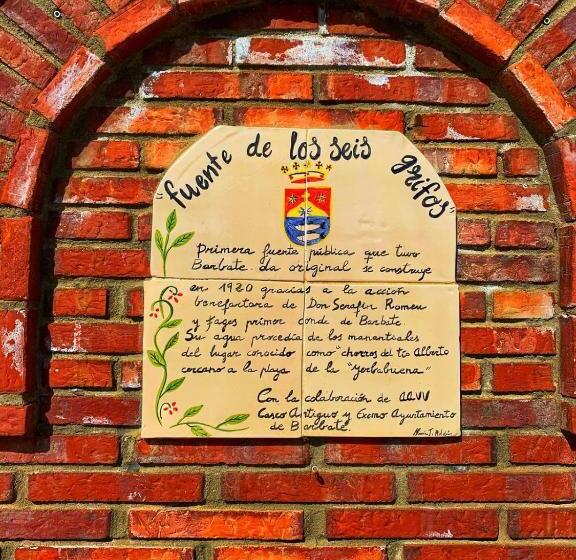 "fuente de los seis grifos"
Primera fuente pública que tuvo
Barbate. La original se construye
en 1920 gracias a la acción
benefactora de Don Serafin Romeu
y Fages primer conde de Barbate
Su agua procedia de los manantiales
del lugar conocido como "chorros del tío Alberto
cercano a la playa de la "Yerbabuena"
Con la colaboración de AAVV
Casco Antiguo y Excmo Ayuntamiento
de Barbate.